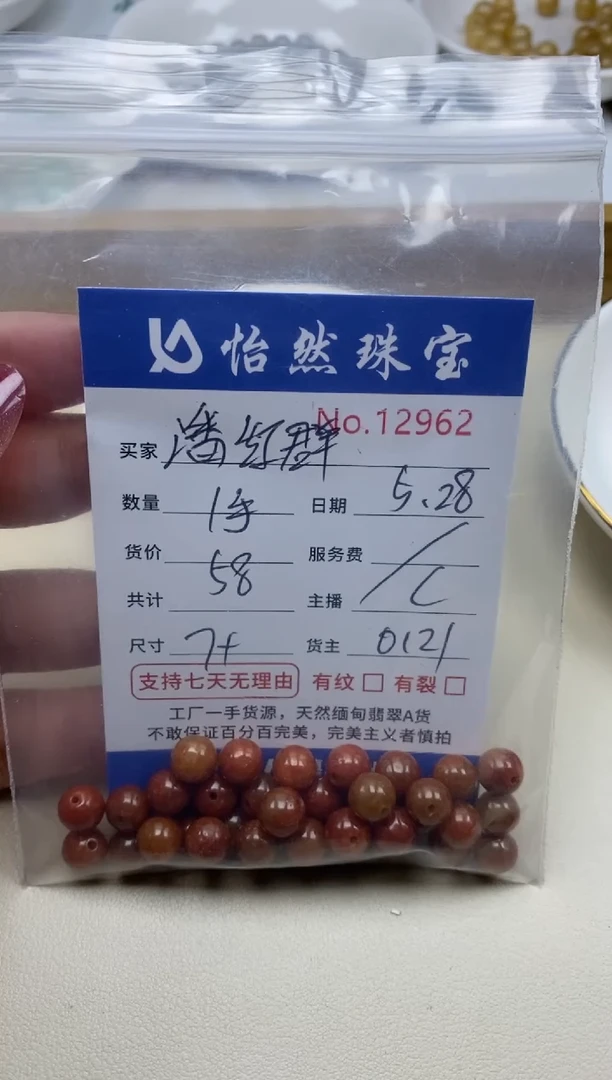 怡然珠宝
No.12962
买家 潘红群
数量 1手 日期 5.28
货价 58 服务费 /
共计 主播 C
尺寸 7+ 货主 0121
支持七天无理由 有纹 □ 有裂 □
工厂一手货源，天然缅甸翡翠A货
不敢保证百分百完美，完美主义者慎拍